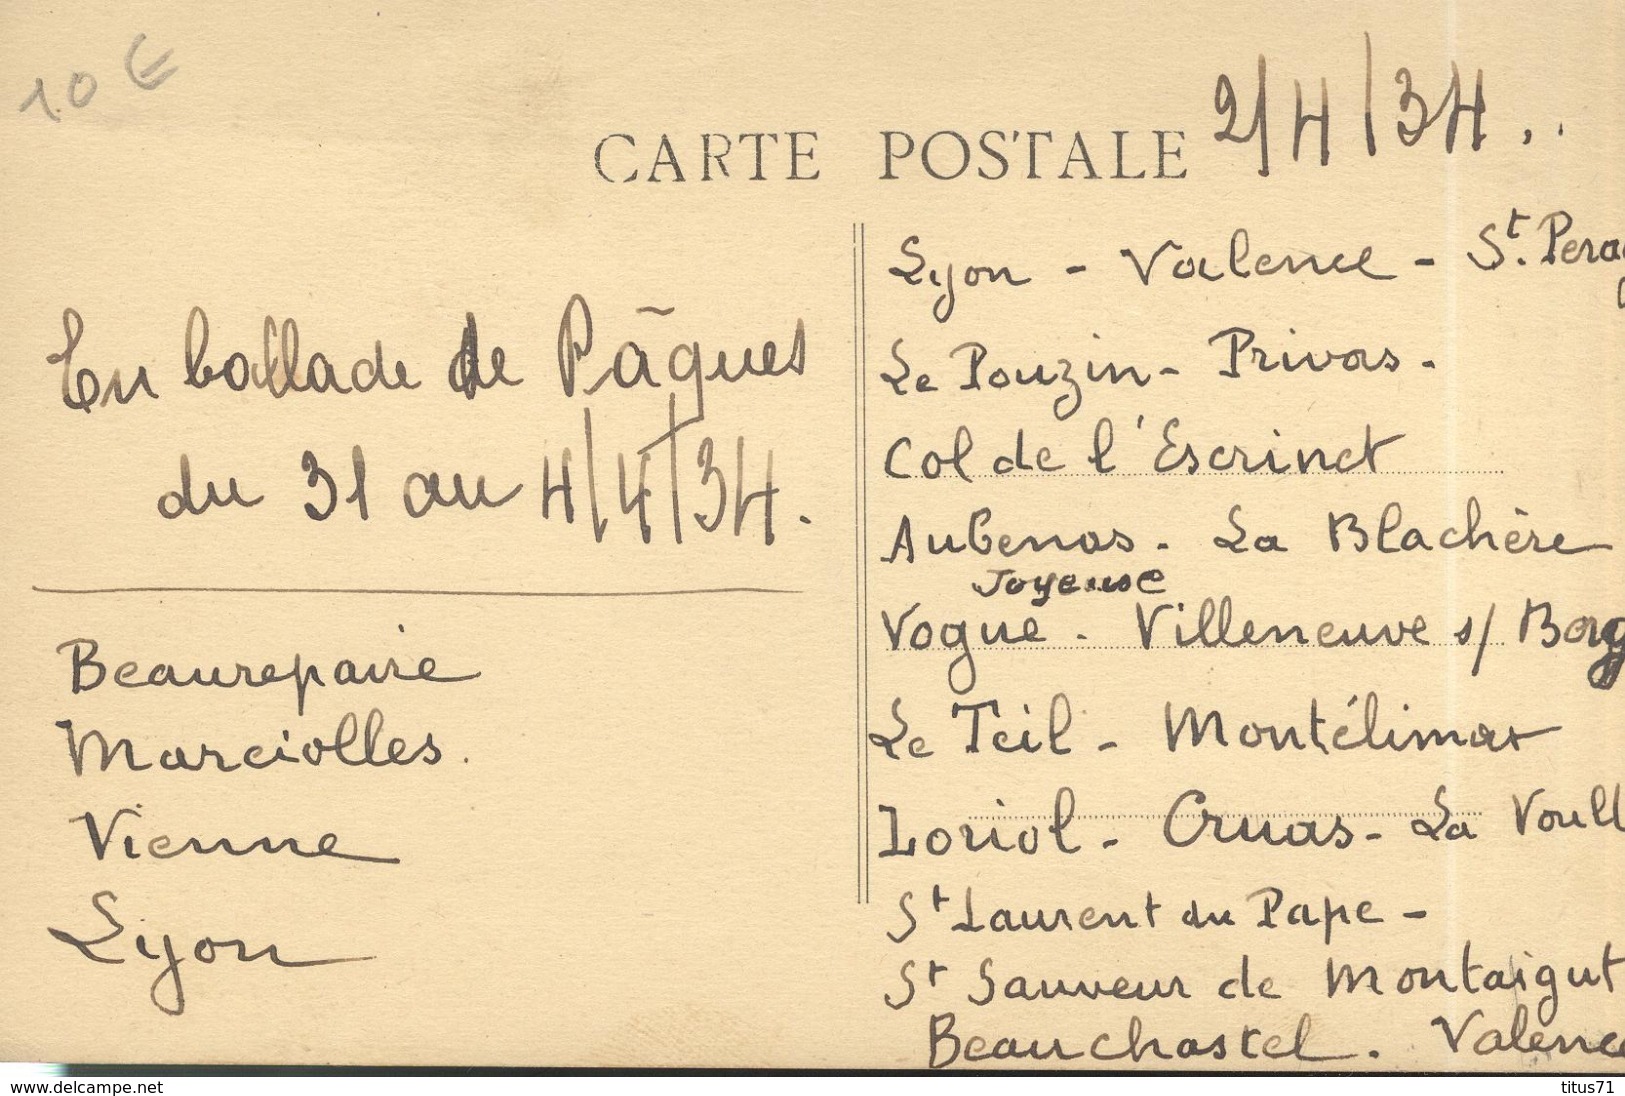 10 €
CARTE POSTALE
2/4/34..
En ballade de Pâques
du 31 au 4/4/34.
Beaurepaire
Marciolles.
Vienne
Lyon
Lyon - Valence - St. Peray
Le Pouzin - Privas.
Col de l'Escrinet
Aubenas. La Blachère
Joyeuse
Vogue. Villeneuve s/ Berg
Le Teil - Montélimar
Loriol - Cruas - La Voult
St Laurent du Pape -
St Sauveur de Montaigut
Beauchastel. Valence
www.delcampe.net
titus71